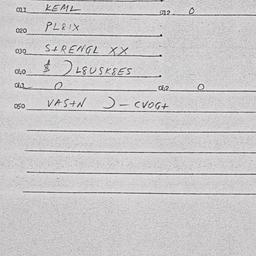 011 KEML 012 0
020 PL81X
030 STRENGL XX
040 $ ) L8USK8ES
041 0 042 0
050 VASTN ) - CVOGT